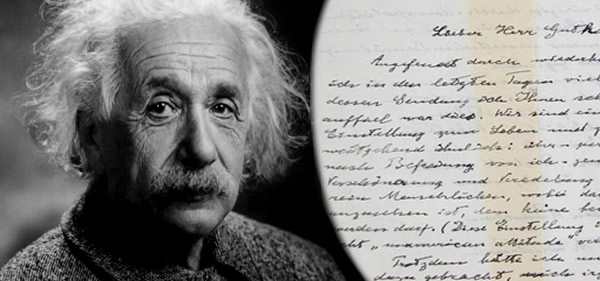 Lieber Herr Gutk
Angefeuert durch wiederho
ich in den letzten Tagen viel
dessen Sendung ich Ihnen seh
auffiel war dies. Wir sind ein
Einstellung zum Leben und z
weitgehend ähnlich: über-per
nach Befreiung von ich-zen
Verschönerung und Veredelung
rein Menschlichen, wobei da
anzusehen ist, dem keine be
werden darf. (Diese Einstellung
cht „unamerican attitude" ve
Trotzdem hätte ich m
dazu gebracht, mich ir